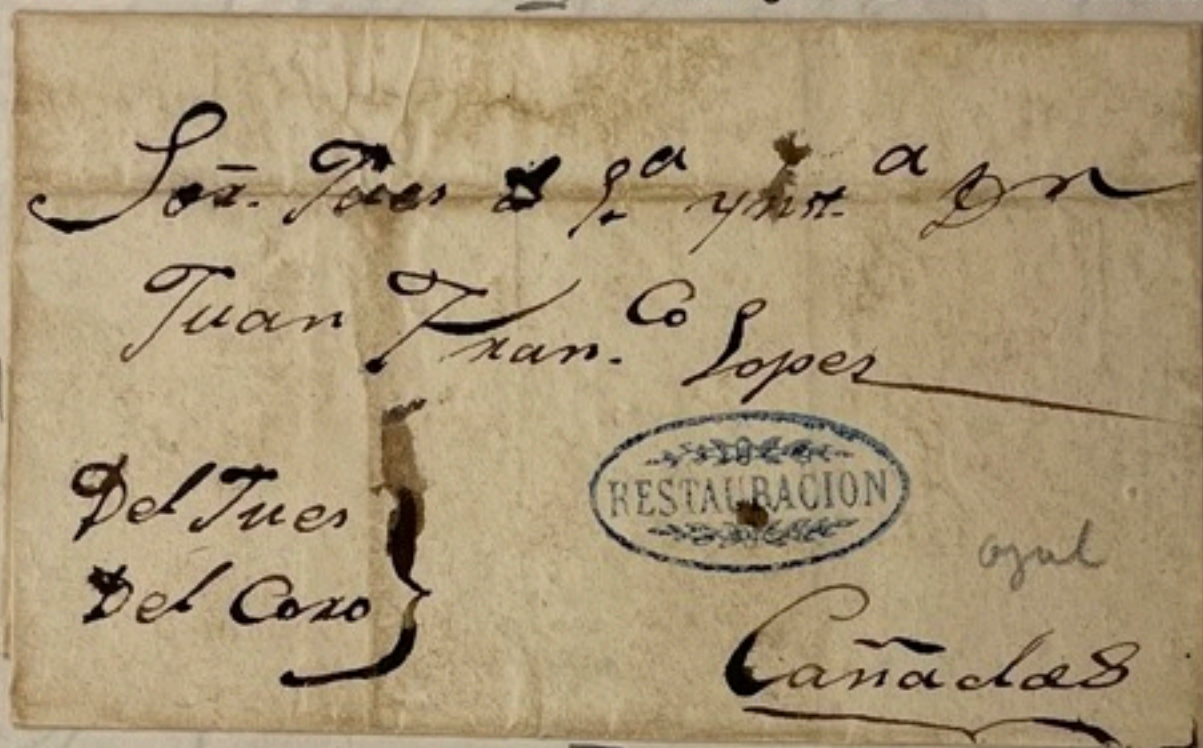 Señ. Jues de 1.ª ynst.ª Dn
Juan Fran.co Lopez
Del Jues
Del Coxo
RESTAURACION
azul
Cañadas